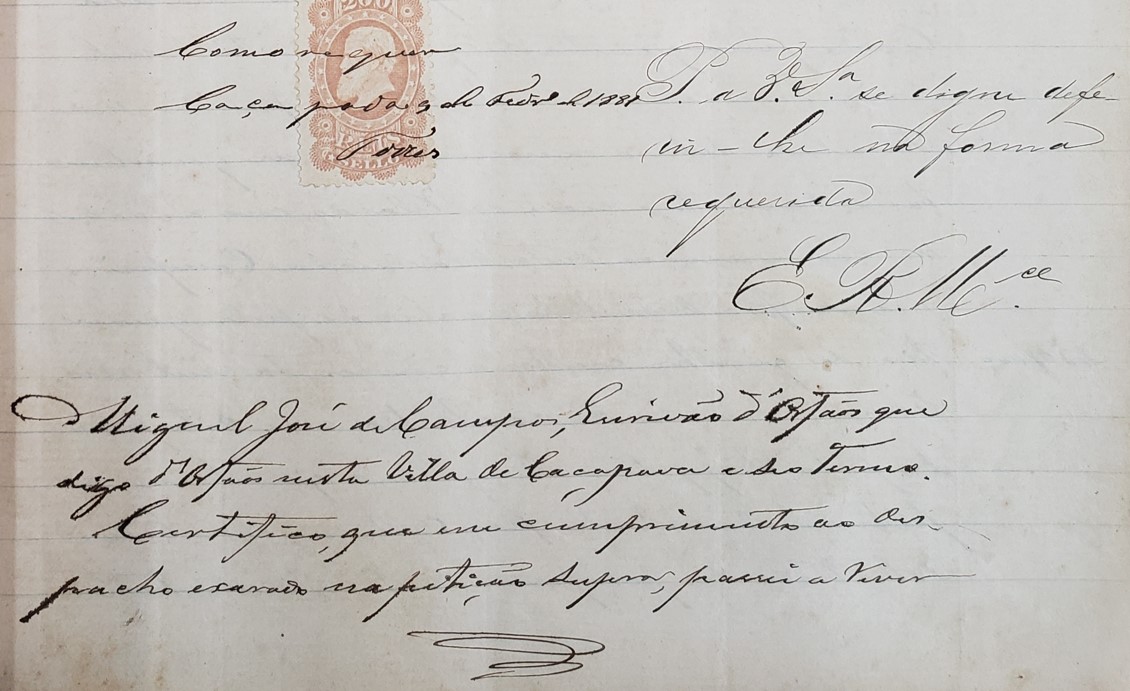 200
Como requer
Caçapava 9 de Fevro. de 1881
Torres
P. a V. Sa. se digne defe-
rir-lhe na forma
requerida
E. R. Mce.
Miguel José de Campos, Escrivão d'Orfãos que
digo d'Orfãos nesta Villa de Caçapava e seo Termo.
Certifico, que em cumprimento ao des-
pacho exarado na petição supra, passei a rever